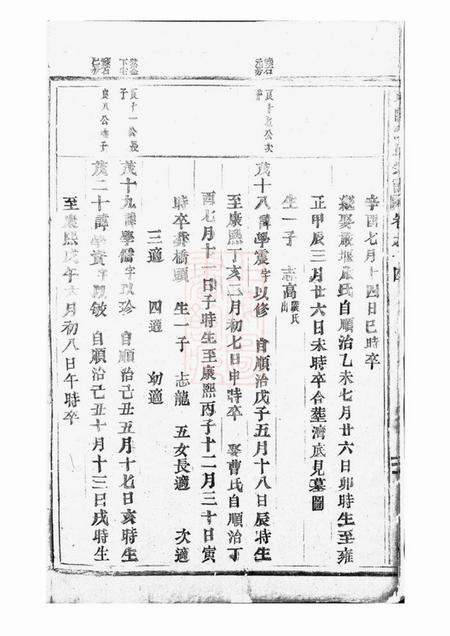 辛酉七月十四日巳時卒
繼娶嚴堰嚴氏自順治乙未七月廿六日卯時生至雍
正甲辰三月廿六日未時卒合塟濟底見墓圖
生一子 志高嚴氏出
良十七公次子
茂十八諱學震字以修 自順治戊子五月十八日辰時生
至康熙丁亥二月初七日申時卒 娶曹氏自順治丁
酉七月十一日子時生至康熙丙子十二月三十日寅
時卒喬橋頭 生一子 志龍 五女長適 次適
三適 四適 幼適
良十一公長子
茂十九諱學儒字以珍 自順治己丑五月十七日亥時生
良八公幼子
茂二十諱學實字觀敏 自順治己丑十月十三日戌時生
至康熙戊午六月初八日午時卒